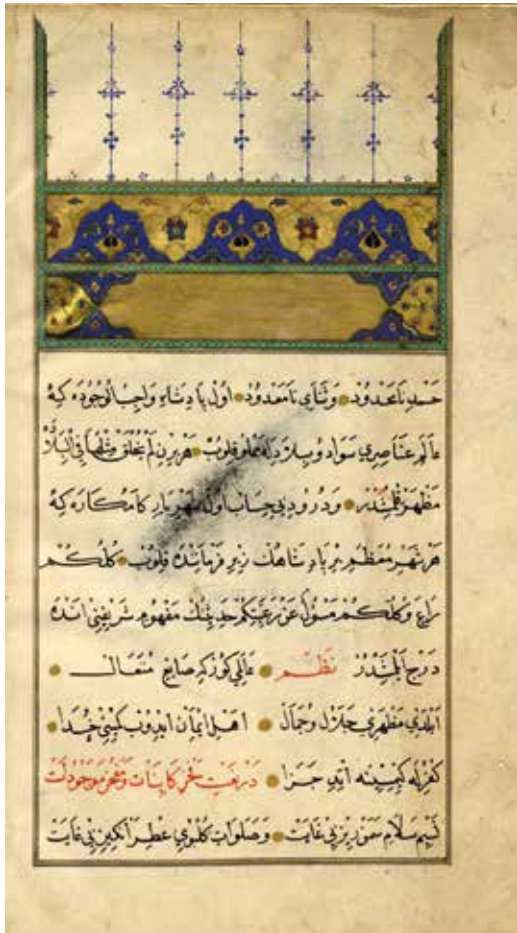 حمد نامحدود و ثنای نامعدود اول پادشاه واجب الوجوده که
عالم عناصری سواد و بلاد له مملو قلوب هر برن لم يخلق مثلها في البلاد
مظهر قلمشدر و درود بی حساب اول شهریار کامکاره که
هر شهر معظم بر پادشاهك زیر فرماننده قلوب كلكم
راع وكلكم مسؤل عن رعيتكم حديثنك مفهوم شریفنی انده
درج ایلمشدر نظم عالمی کورکه صانع متعال
ایلدی مظهری جلال و جمال اهل ایمان ایدوب کیمنی خدا
کفرله کیمینه ایتدی جزا در نعت فخر کاینات و مفخر موجودات
نسیم سلام سمن ریز بی غایت و صلوات کلبوی عطر انکیز بی غایت